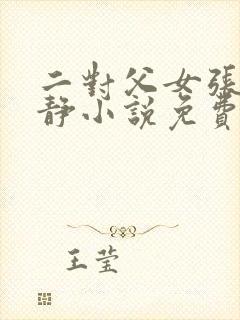 二對父女張
靜小說免費
王莹